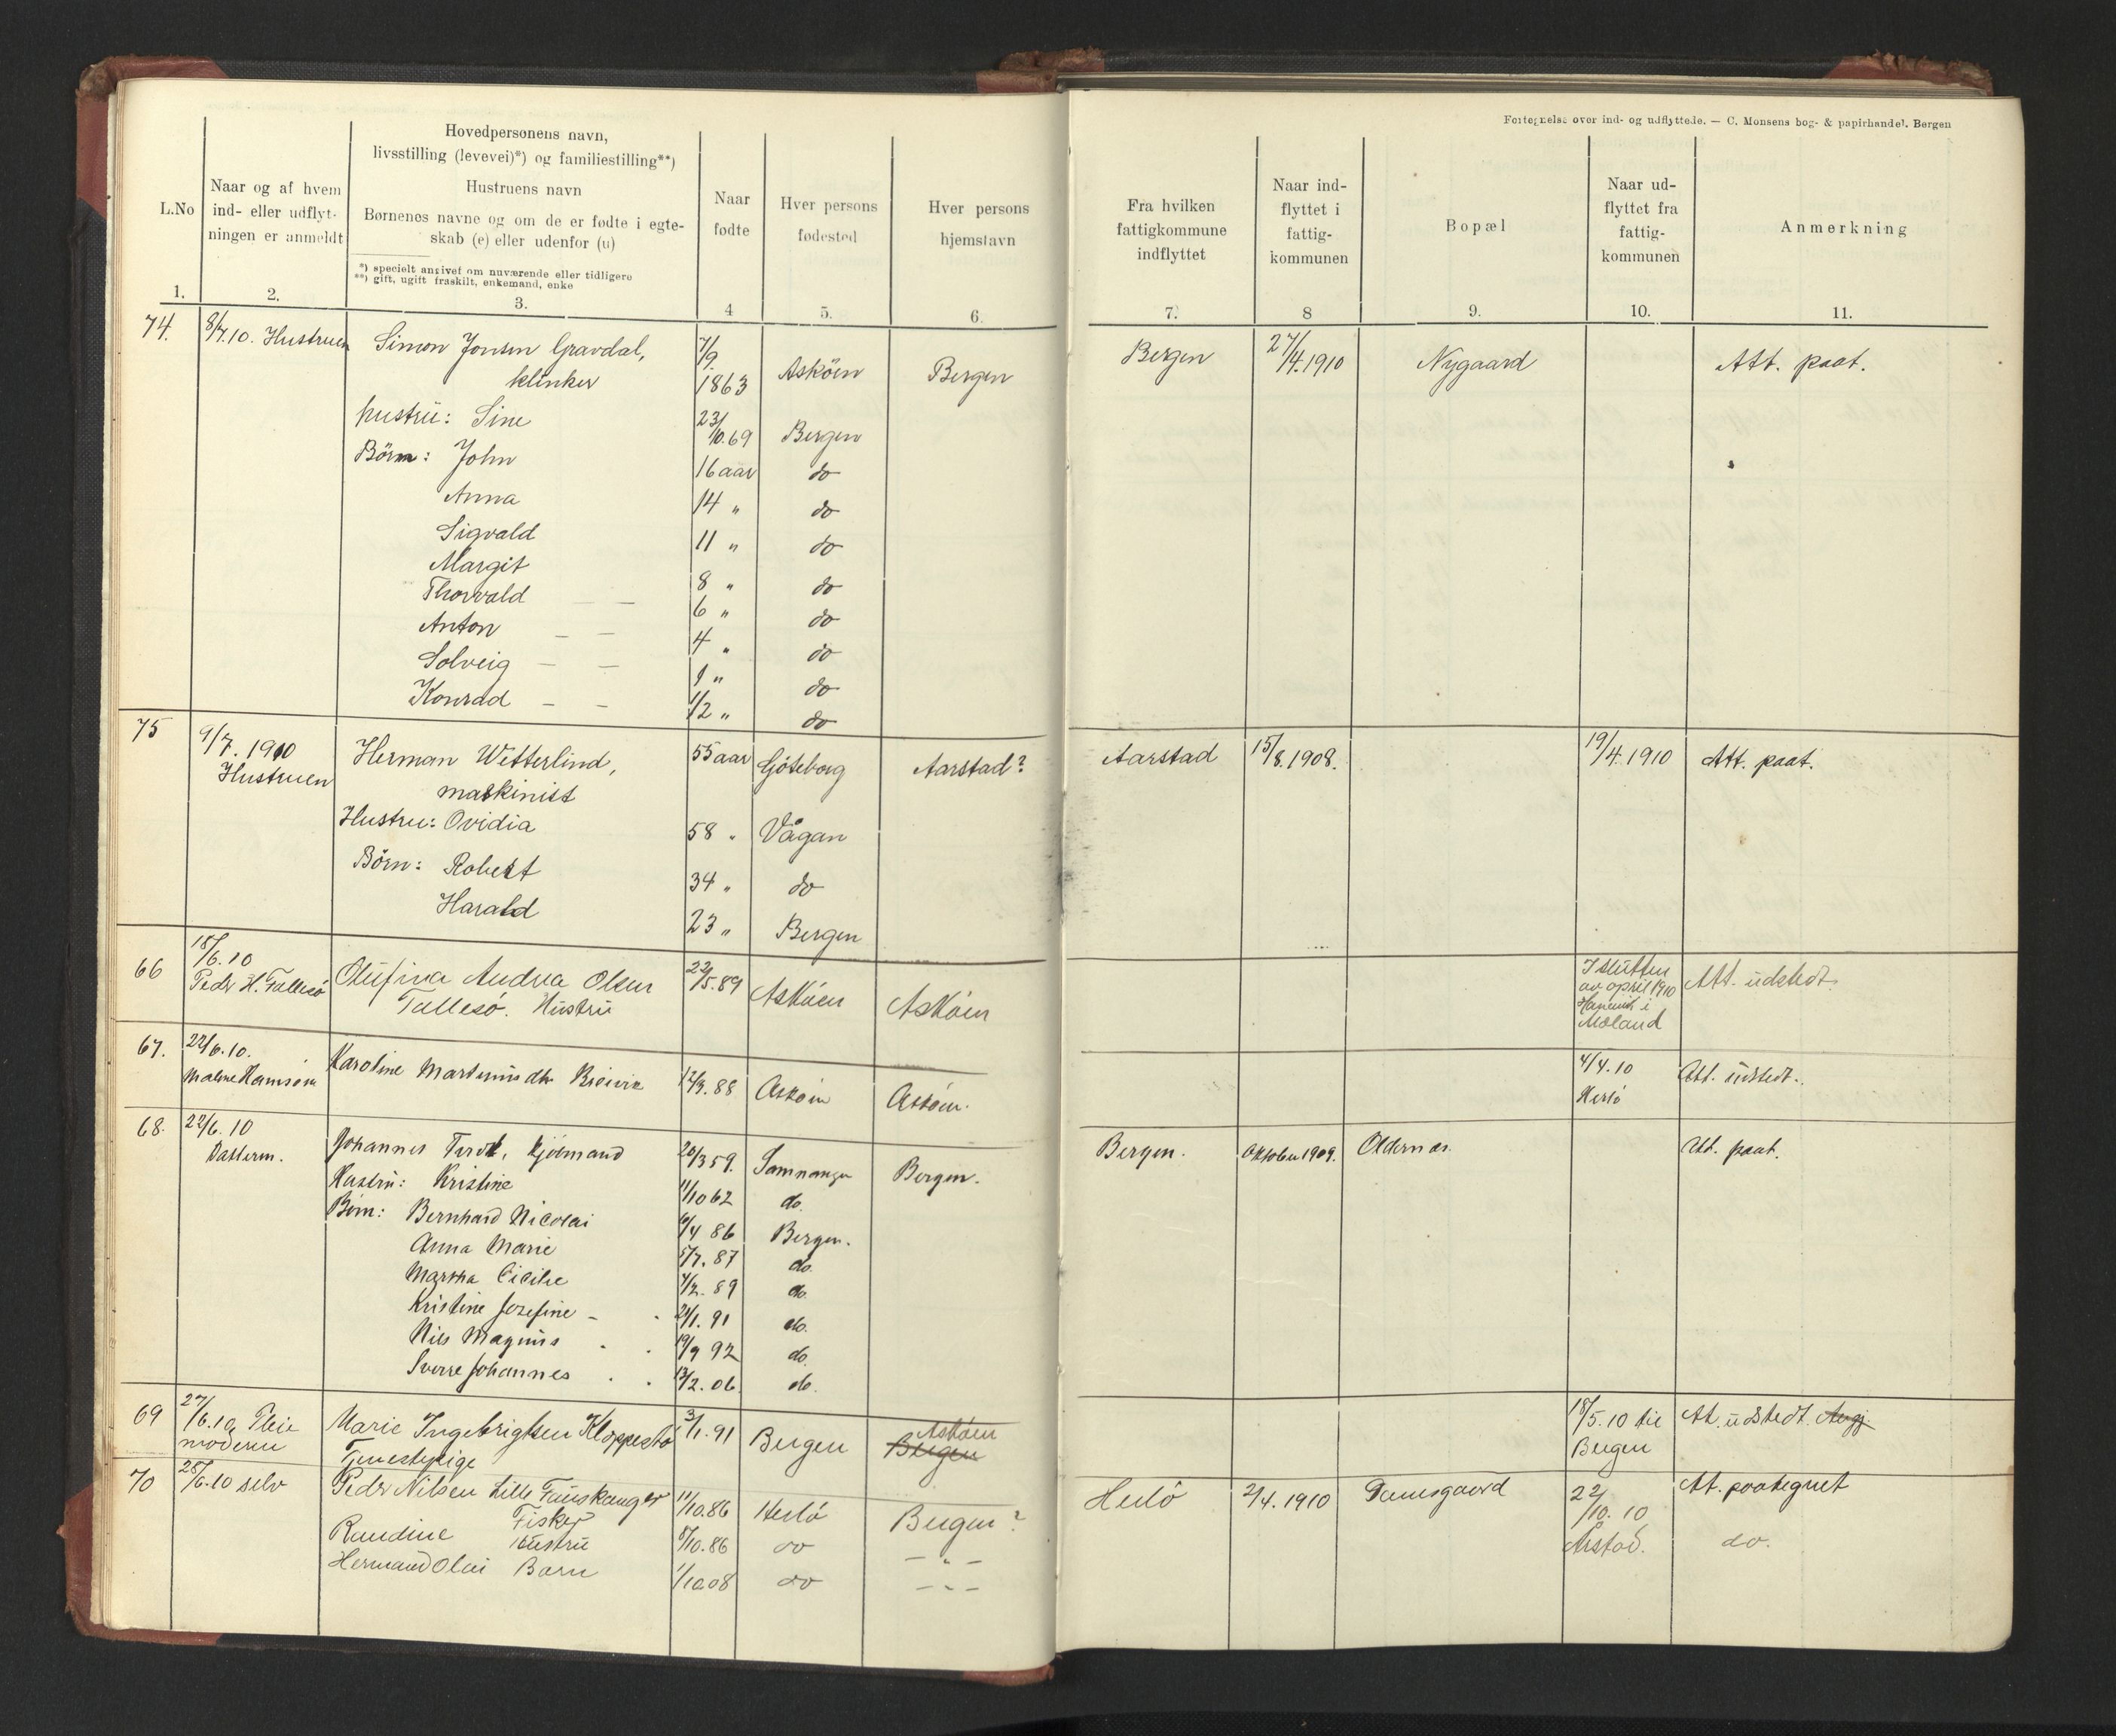 Fortegnelse over ind- og udflyttede. — C. Monsens bog- & papirhandel. Bergen
L.No
1.
Naar og af hvem
ind- eller udflyt-
ningen er anmeldt
2.
Hovedpersonens navn,
livsstilling (levevei)*) og familiestilling**)
Hustruens navn
Børnenes navne og om de er fødte i egte-
skab (e) eller udenfor (u)
*) specielt angivet om nuværende eller tidligere
**) gift, ugift fraskilt, enkemand, enke
3.
Naar
fødte
4
Hver persons
fødested
5.
Hver persons
hjemstavn
6.
Fra hvilken
fattigkommune
indflyttet
7.
Naar ind-
flyttet i
fattig-
kommunen
8
Bopæl
9.
Naar ud-
flyttet fra
fattig-
kommunen
10.
Anmerkning
11.
74. 8/7.10. Hustruen Simon Jonsen Gravdal, 7/9. 1863 Asköen Bergen Bergen 27/4.1910 Nygaard Att. paat.
klinker
hustru: Sine 23/10.69 Bergen
Börn: John 16 aar do
Anna 14 " do
Sigvald 11 " do
Margit 8 " do
Thorvald — — 6 " do
Anton — — 4 " do
Solveig — — 1 " do
Konrad — — 1/2 " do
75 9/7. 1910 Herman Wetterlind, 55 aar Göteborg Aarstad? Aarstad 15/8.1908. 19/4.1910 Att. paat.
Hustruen maskinist
Hustru: Ovidia 58 " Vågan
Börn: Robert 34 " do
Harald 23 " Bergen
66 18/6.10 Olufina Andrea Olsen 22/5.89 Asköen Asköen I slutten Att. udstedt.
Peder H. Tallesö Tallesö. Hustru av april 1910
i
Moland
67. 22/6.10. Karoline Martinusdtr 12/9.88 Asköen Asköen. 4/4.10 Att. udstedt.
Herlö
68. 22/6.10 Johannes 20/3 59. Samnanger Bergen. Bergen. Oktober 1909. Oldernæs. Att. paat.
Hustru: Kristine 11/10 62 do.
Börn: Bernhard Nicolai 6/4 86 Bergen.
Anna Marie 5/7. 87 do.
Martha Cicilie 7/2. 89 do.
Kristine Josefine - 21/1. 91 do.
Nils Magnus 19/9 92 do.
Sverre Johannes 13/2. 06. do.
69 27/6.10 Pleie Marie Ingebrigtsen Kleppestö 3/1.91 Bergen Asköen 18/5.10 til At. udstedt.
moderen Tjenestepige Bergen Bergen
70 28/6.10 selv Peder Nilsen Lille Tauskanger 11/10.86 Herlö Bergen? Herlö 2/4.1910 Damsgaard 22/10.10 At. paategnet
Fisker Årstad. do.
Randine Hustru 8/10.86 do — " —
Hermand Olai Barn 1/10 08 do — " —